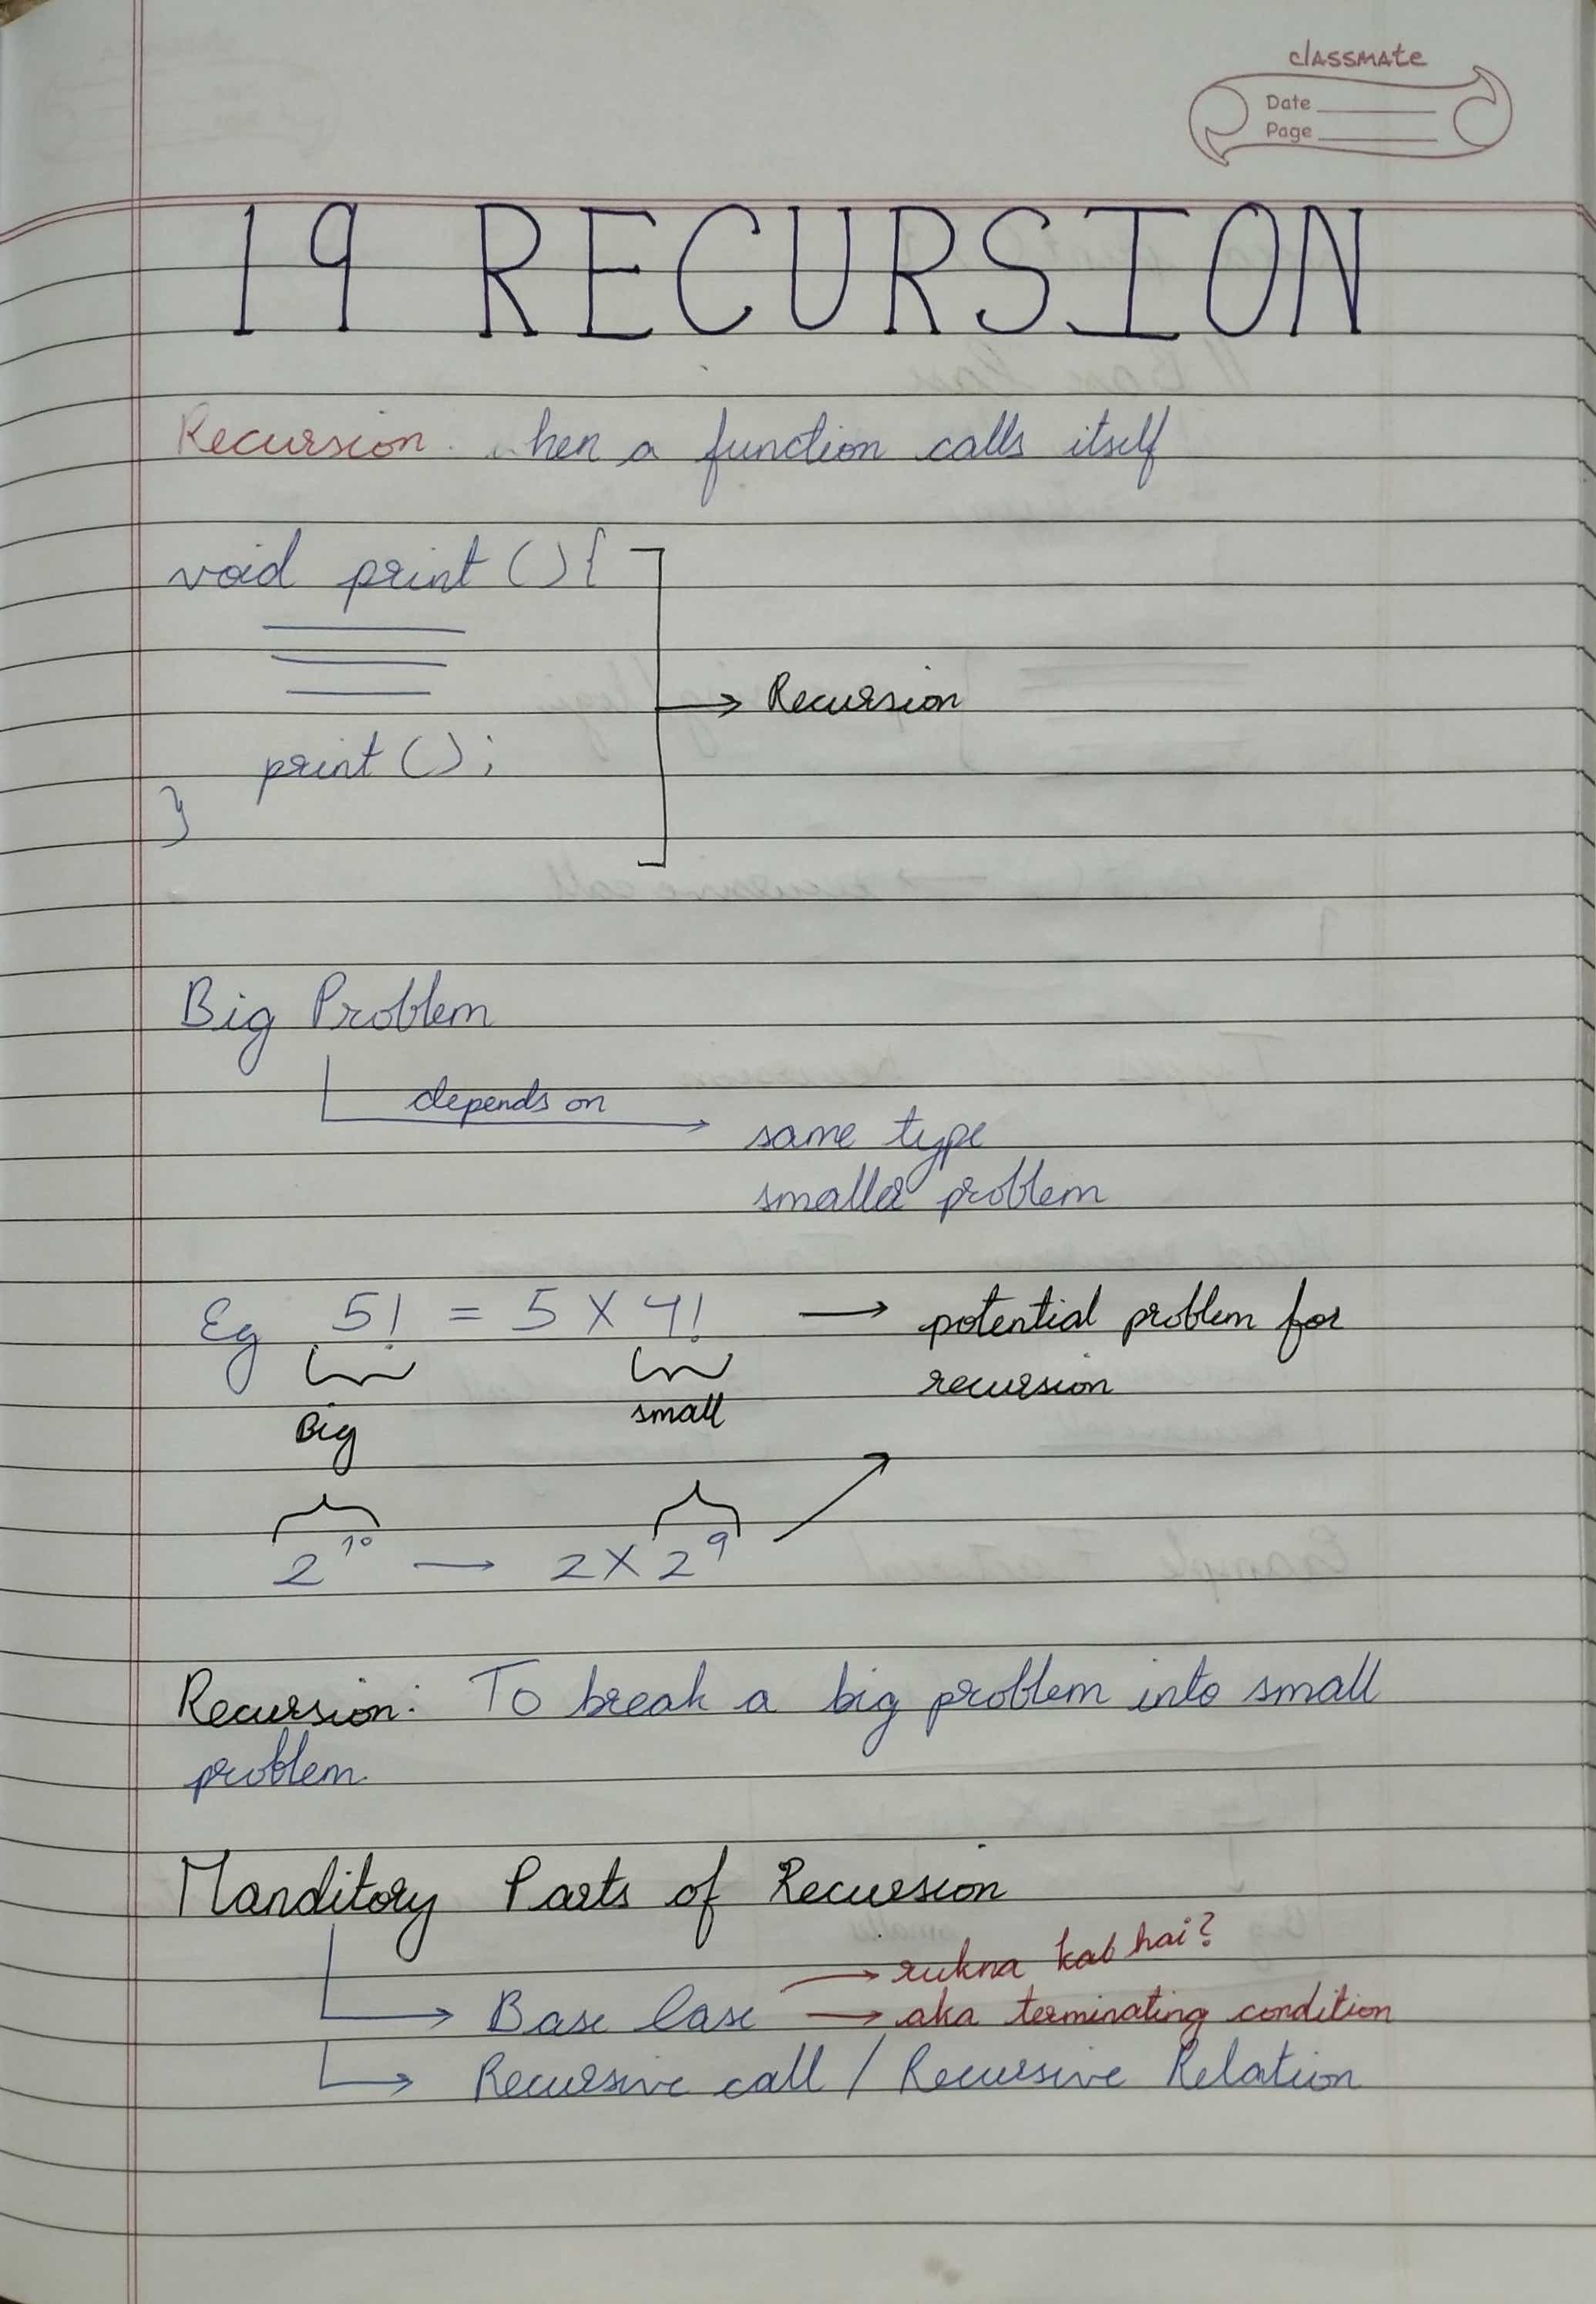 classmate
Date
Page
19 RECURSION
Recursion: when a function calls itself
void print () {
→ Recursion
print ();
}
Big Problem
depends on
same type
smaller problem
Eg 5! = 5 X 4! → potential problem for
recursion
Big
small
2^10 — 2 X 2^9
Recursion: To break a big problem into small
problem.
Manditory Parts of Recursion
→ rukna kab hai?
→ Base Case → aka terminating condition
→ Recursive call / Recursive Relation